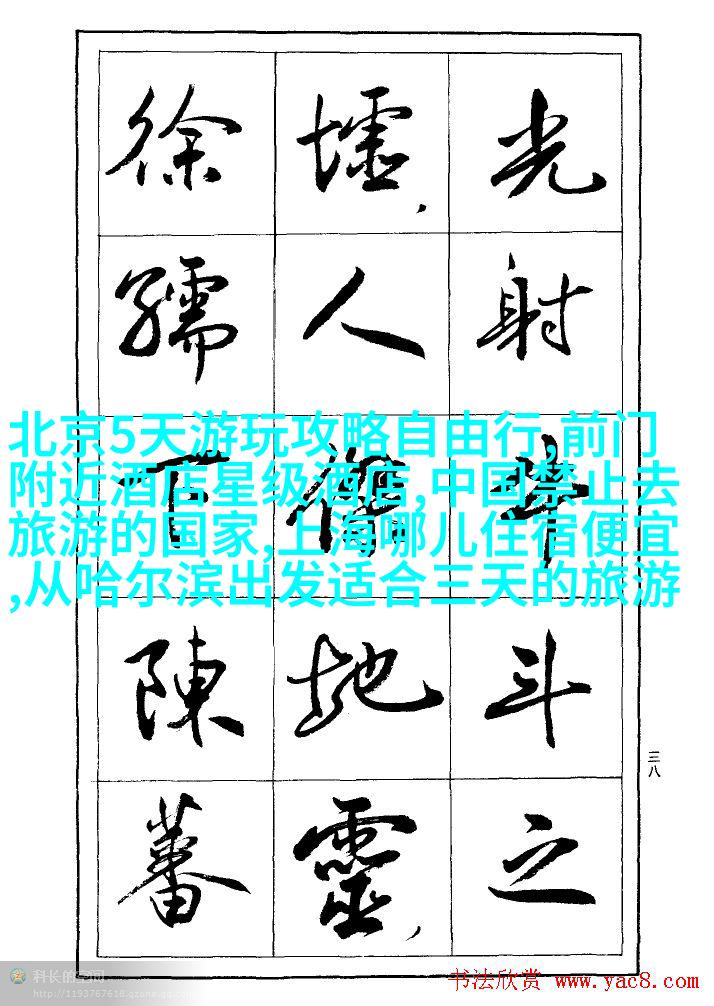 光射牛斗之
墟,人傑地靈,
徐孺下陳蕃
三八
北京5天游玩攻略自由行,前门
附近酒店星级酒店,中国禁止去
旅游的国家,上海哪儿住宿便宜
,从哈尔滨出发适合三天的旅游
科长的空间
http://1193767618.qzone.qq.com
书法欣赏 www.yac8.com